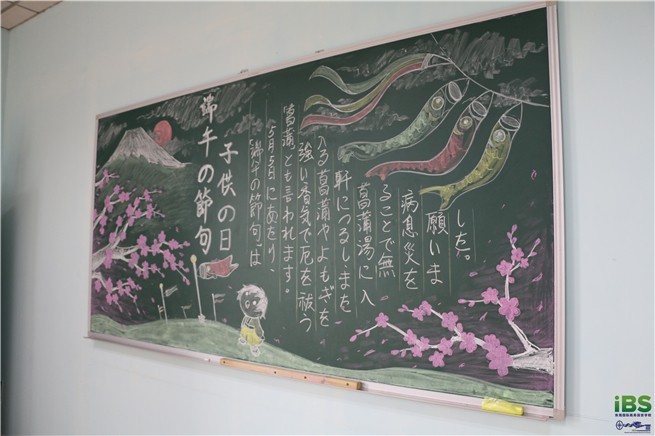 端午の節句
子供の日
「端午の節句」は
5月5日にあたり、
「菖蒲とも言われます。
強い香気で厄を祓う
入る菖蒲やよもぎを
軒につるし、まを
菖蒲湯に入
ることで無
病息災を
願いま
した。
iBS